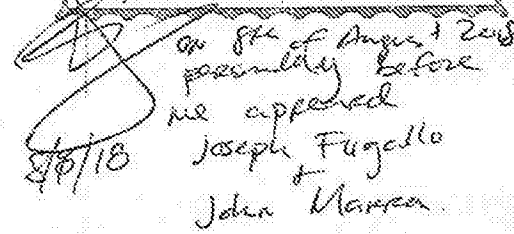 on 8th of August 2018
personally before
me appeared
8/8/18 Joseph Fugallo
+
John Marrea.